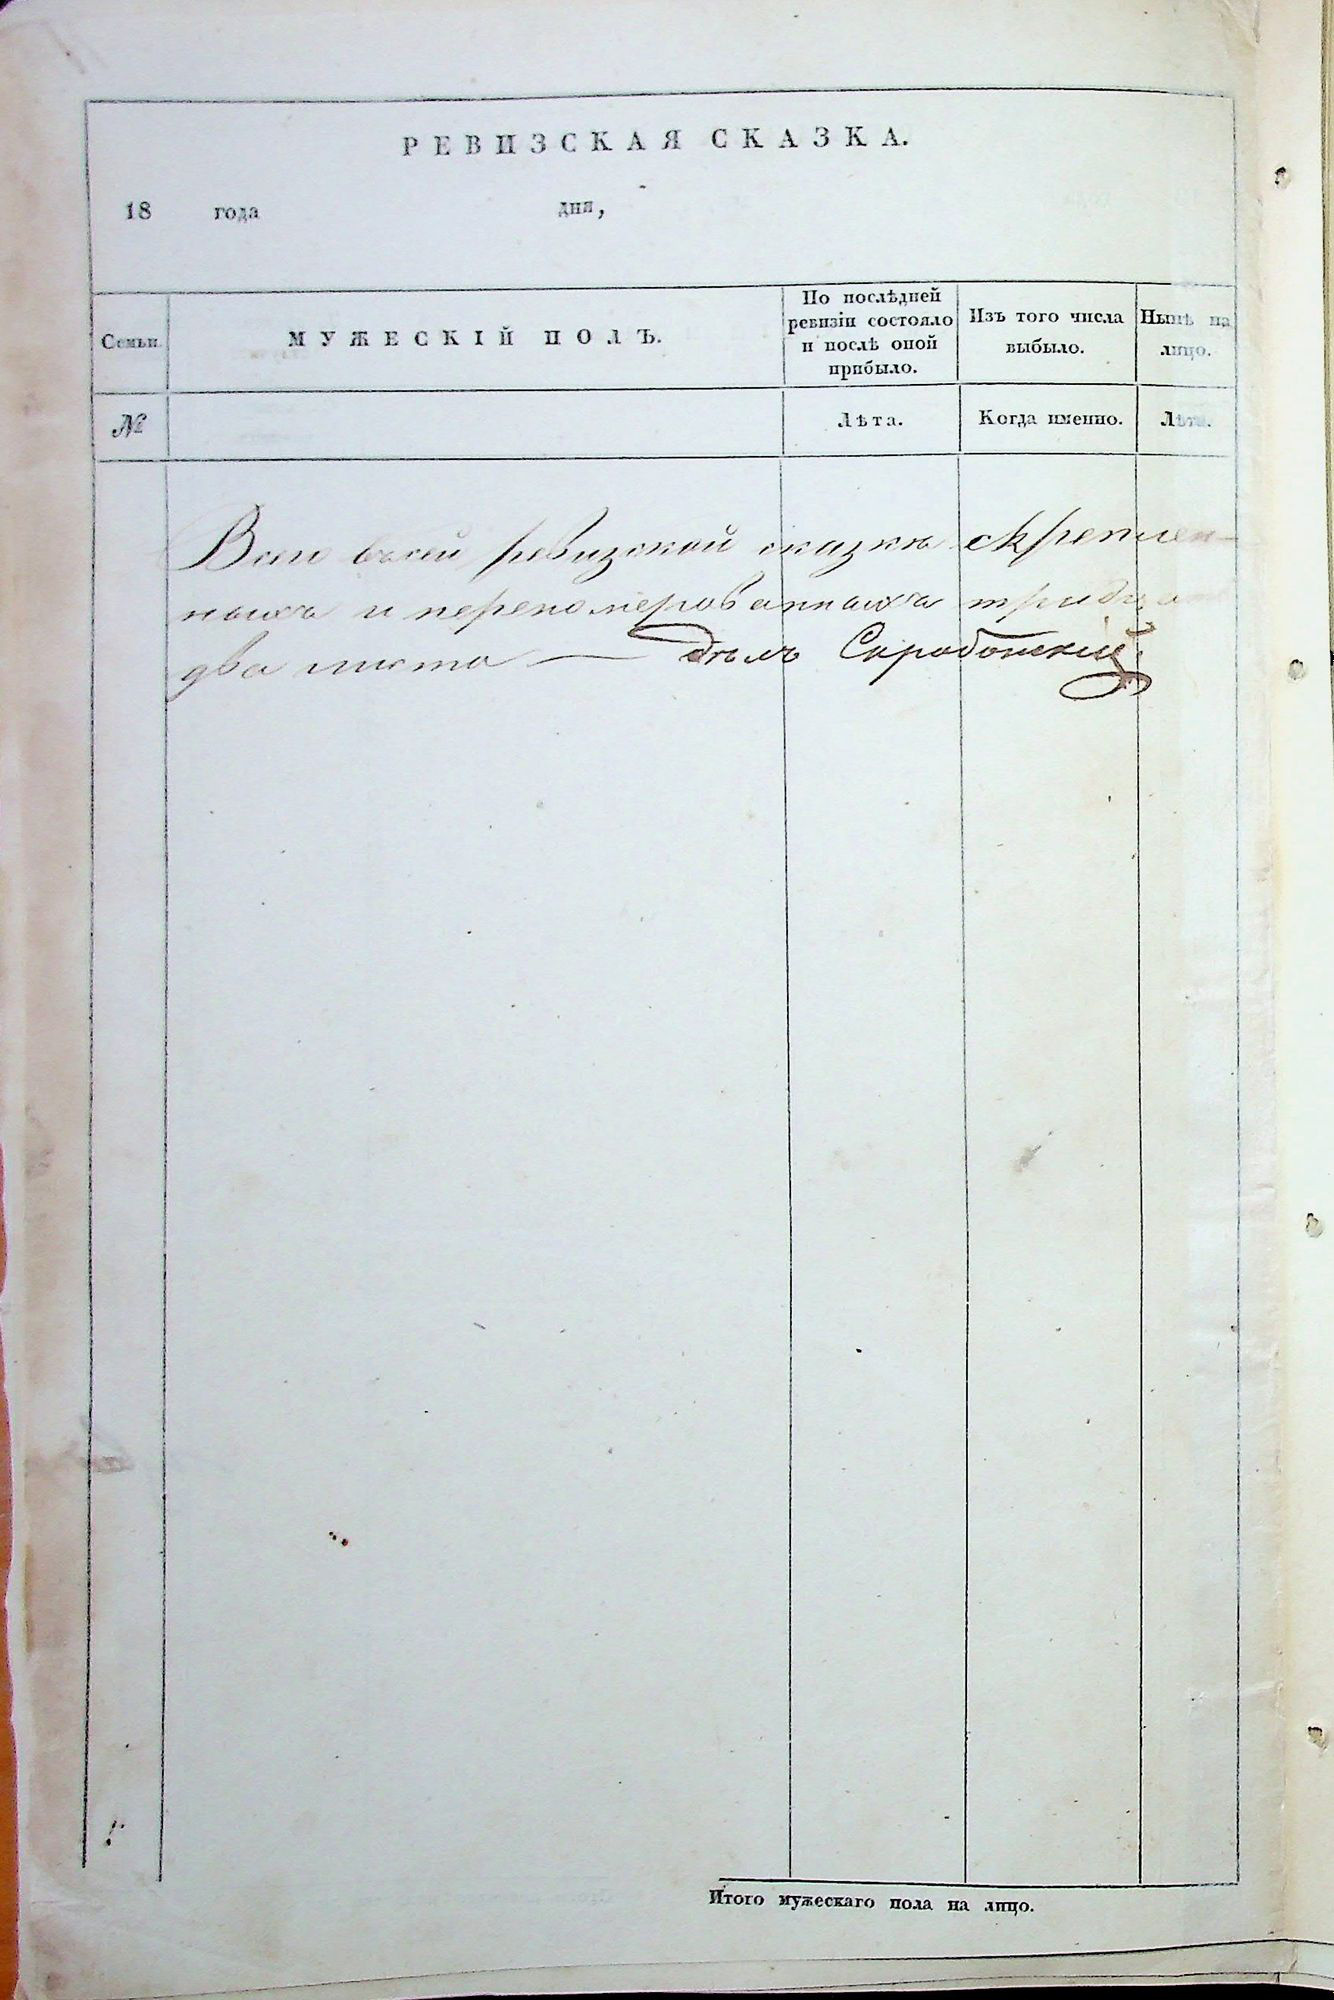 РЕВИЗСКАЯ СКАЗКА.
18 года дня,
Семьи.
МУЖЕСКІЙ ПОЛЪ.
По послѣдней
ревизіи состояло
и послѣ оной
прибыло.
Изъ того числа
выбыло.
Нынѣ на
лицо.
№
Лѣта.
Когда именно.
Лѣта.
Всего въ сей ревизской сказкѣ скреплен-
ныхъ и перенумерованныхъ тридцать
два листа —
Скробонскій
Итого мужескаго пола на лицо.